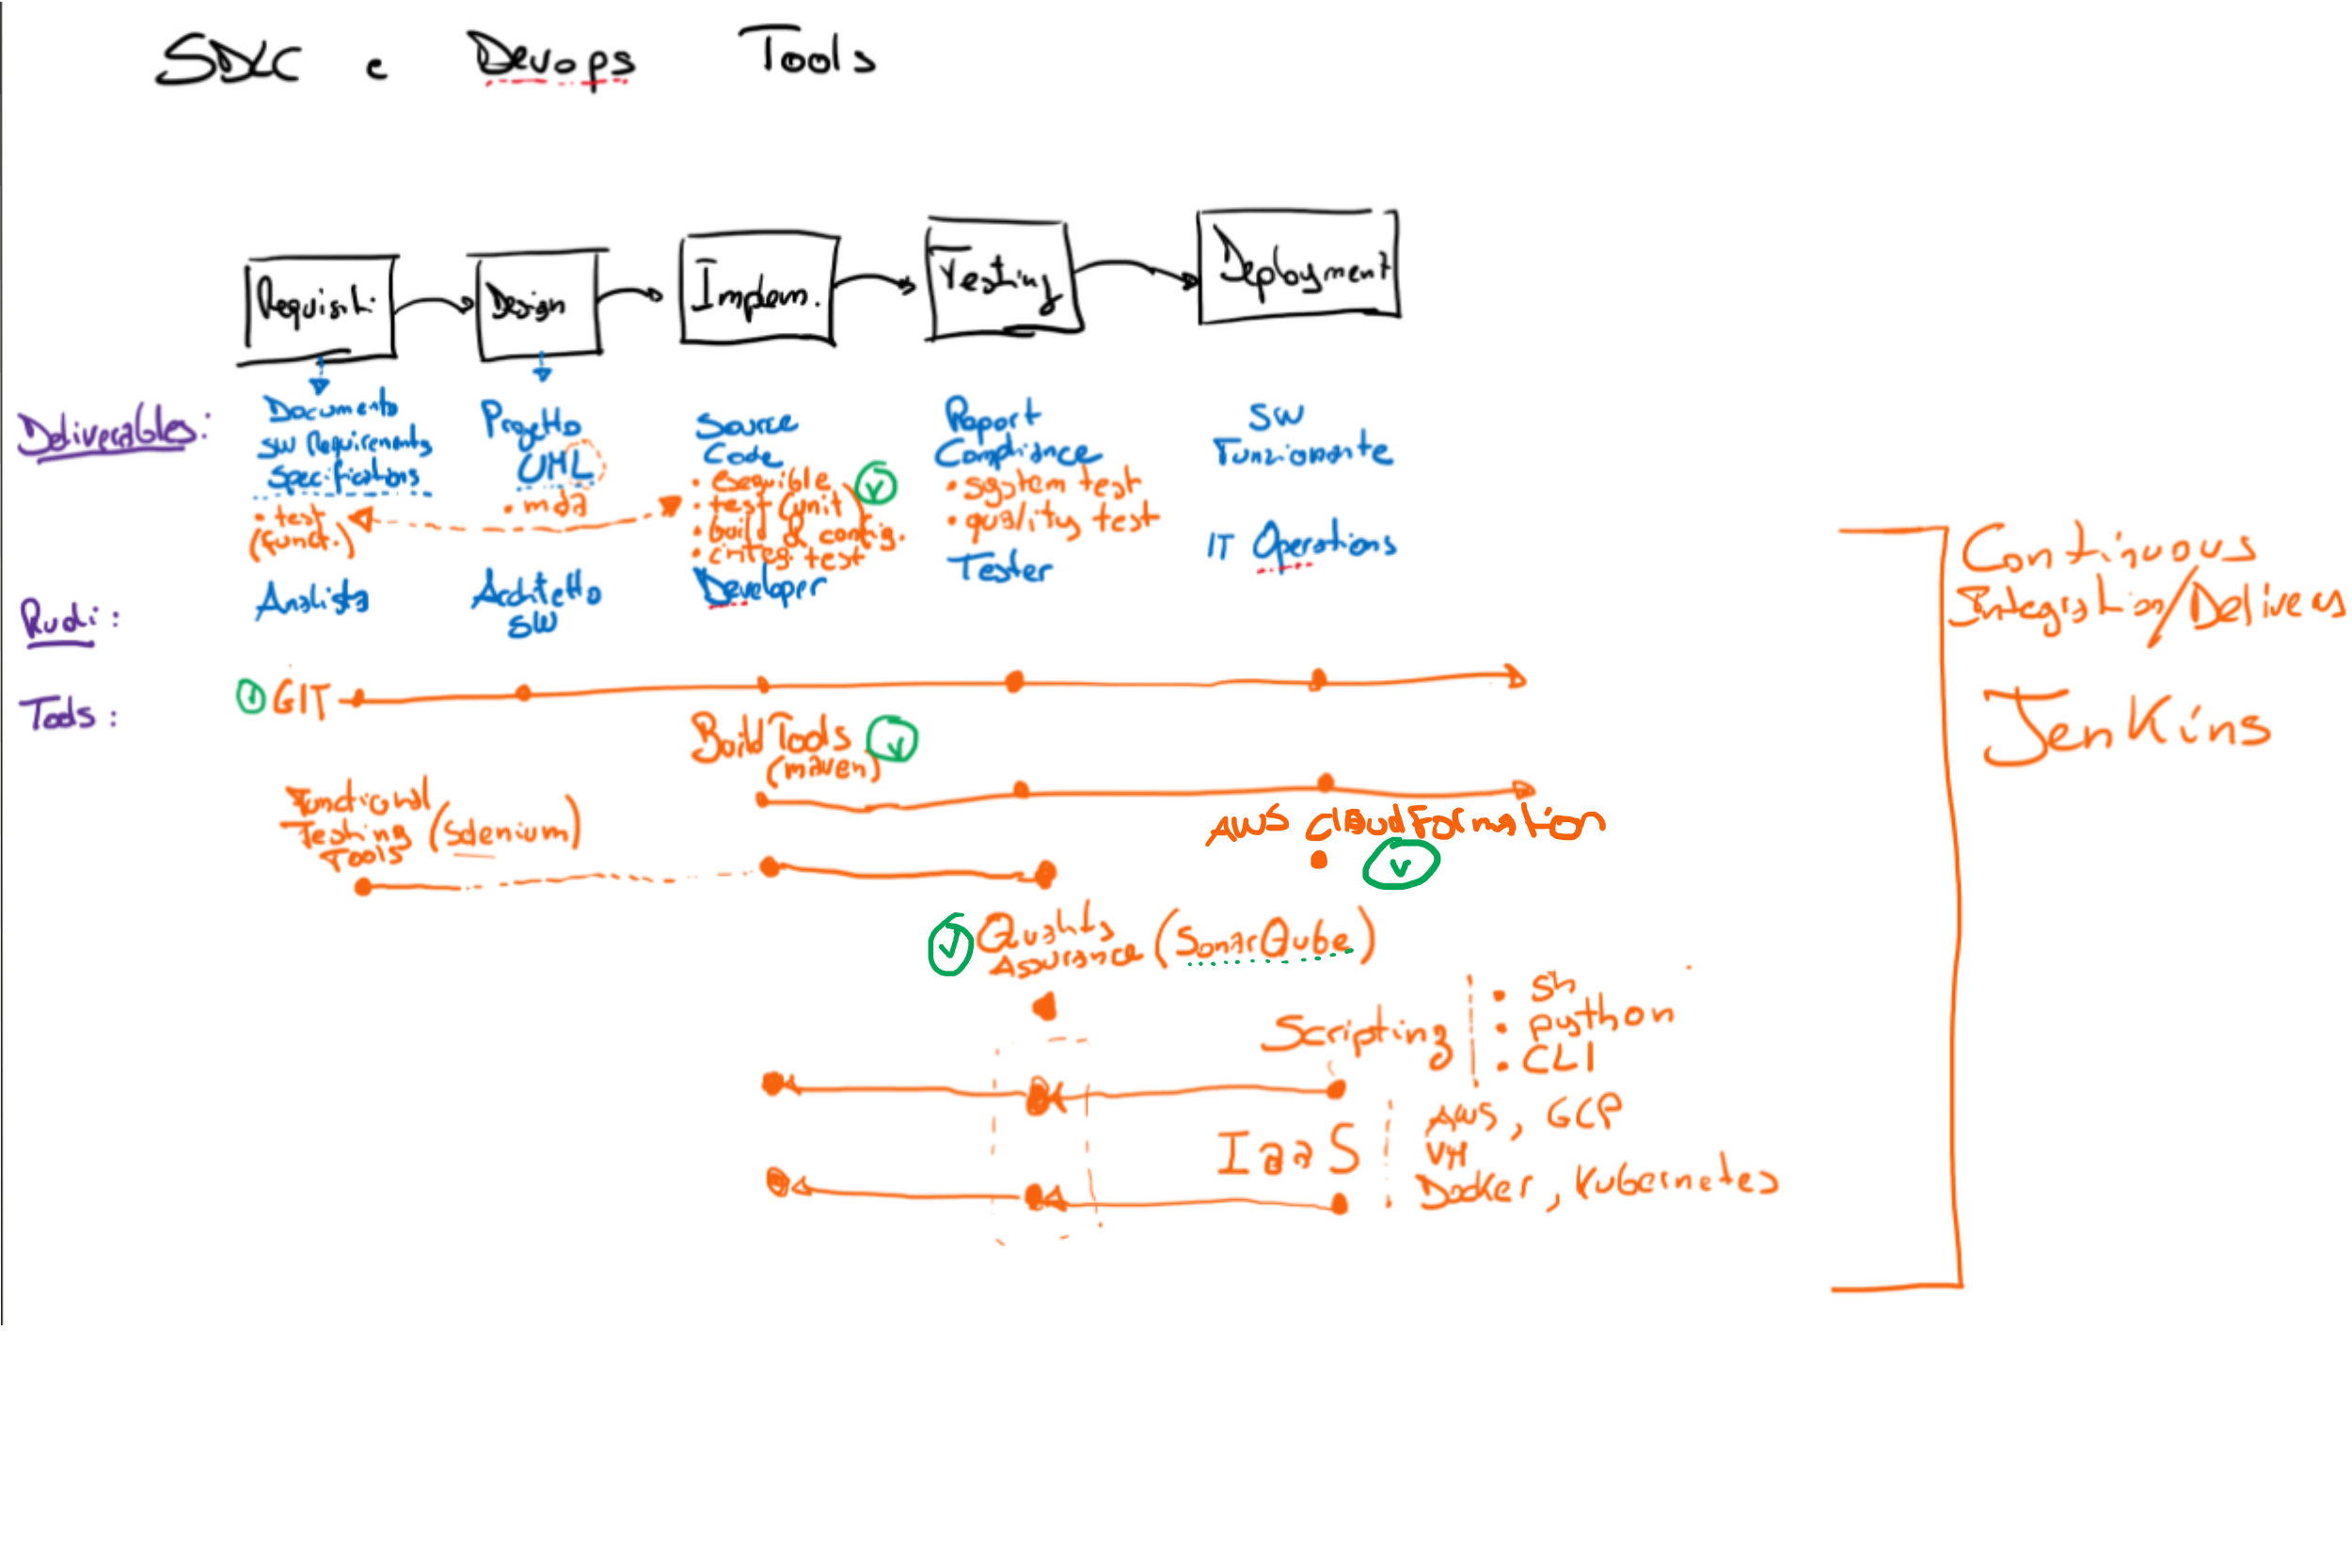 SDLC e Devops Tools
Requisiti
Design
Implem.
Testing
Deployment
Deliverables:
Documento
SW Requirements
Specifications
• test
(funct.)
Progetto
UML
• mda
Source
Code
• eseguibile
• test (unit)
• build & config.
• integ. test
Report
Compliance
• system test
• quality test
SW
Funzionante
Ruoli:
Analista
Architetto
SW
Developer
Tester
IT Operations
Tools:
GIT
Build Tools
(maven)
Functional
Testing (Selenium)
Tools
AWS cloudformation
Quality
Assurance (SonarQube)
Scripting
• sh
• python
• CLI
IaaS
AWS, GCP
VM
Docker, Kubernetes
Continuous
Integration/Delivery
Jenkins